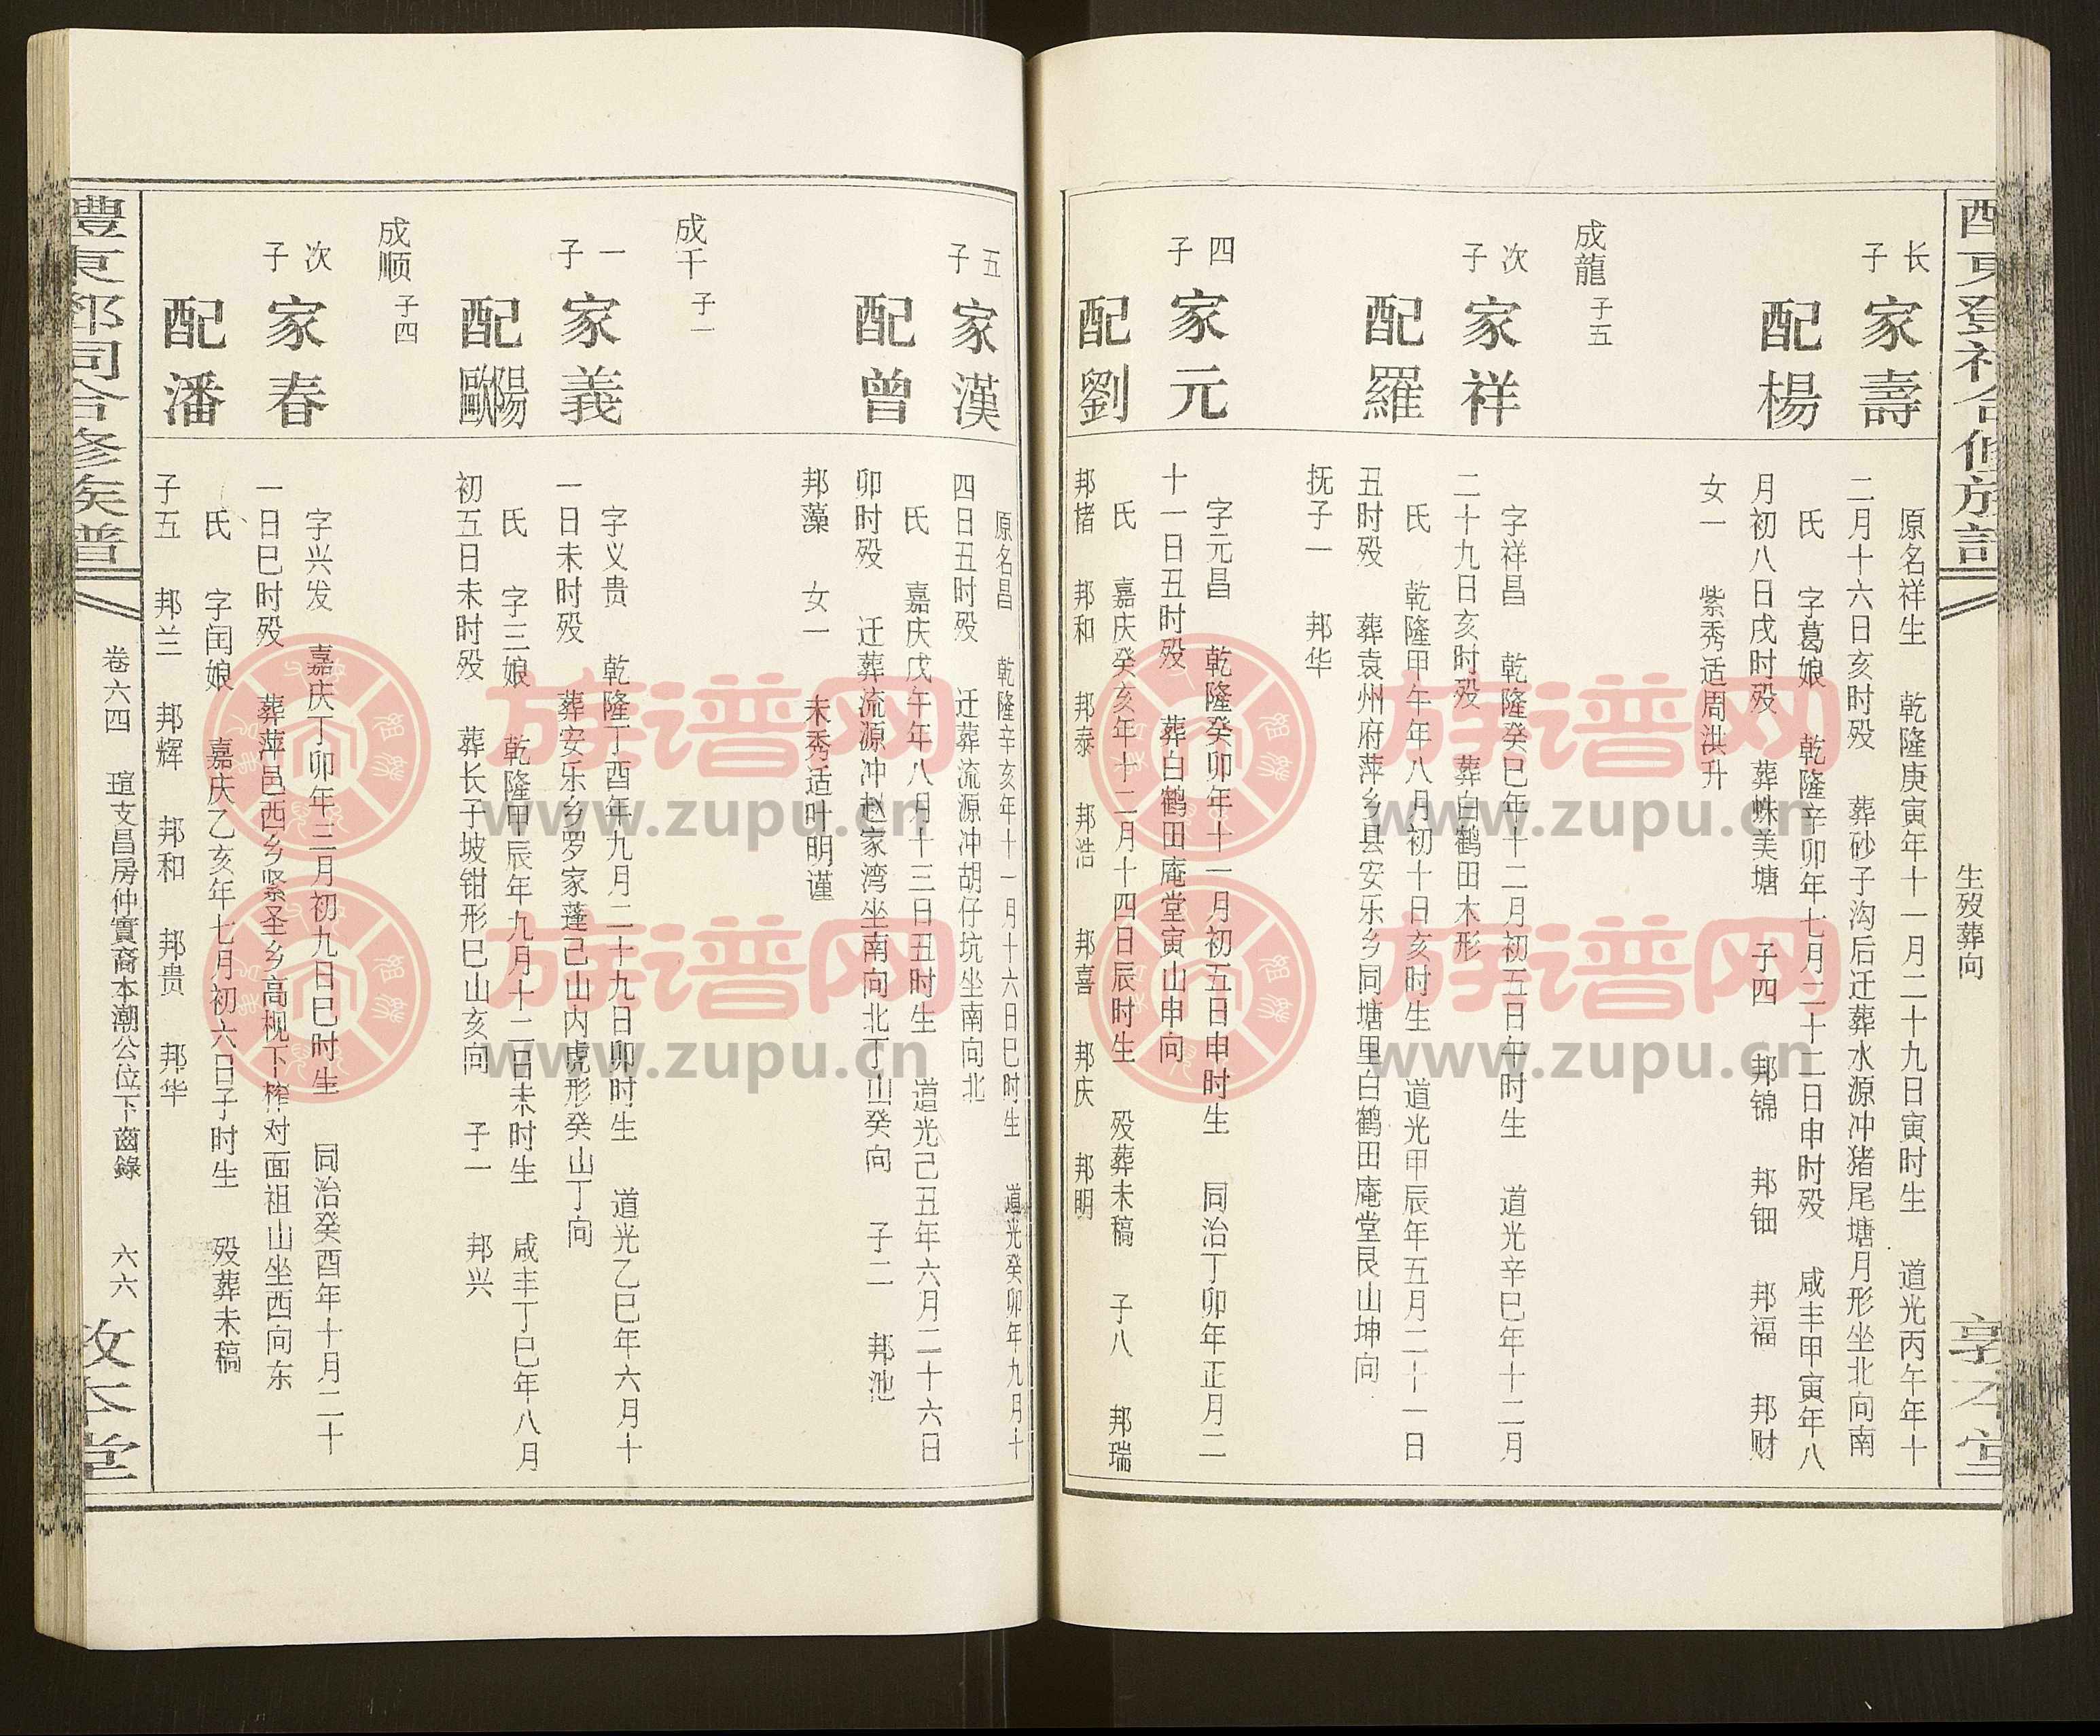 生殁葬向
长子
家壽
原名祥生 乾隆庚寅年十一月二十九日寅时生 道光丙午年十
二月十六日亥时殁 葬砂子沟后迁葬水源冲猪尾塘月形坐北向南
配楊
氏 字葛娘 乾隆辛卯年七月二十二日申时殁 咸丰甲寅年八
月初八日戌时殁 葬蛛美塘 子四 邦锦 邦钿 邦福 邦财
女一 紫秀适周洪升
成龍 子五
次子
家祥
字祥昌 乾隆癸巳年十二月初五日午时生 道光辛巳年十二月
二十九日亥时殁 葬白鹤田木形
配羅
氏 乾隆甲午年八月初十日亥时生 道光甲辰年五月二十一日
丑时殁 葬袁州府萍乡县安乐乡同塘里白鹤田庵堂艮山坤向
抚子一 邦华
四子
家元
字元昌 乾隆癸卯年十一月初五日申时生 同治丁卯年正月二
十一日丑时殁 葬白鹤田庵堂寅山申向
配劉
氏 嘉庆癸亥年十二月十四日辰时生 殁葬未稿 子八 邦瑞
邦楮 邦和 邦泰 邦浩 邦喜 邦庆 邦明
五子
家漢
原名昌 乾隆辛亥年十一月十六日巳时生 道光癸卯年九月十
四日丑时殁 迁葬流源冲胡仔坑坐南向北
配曾
氏 嘉庆戊午年八月十三日丑时生 道光己丑年六月二十六日
卯时殁 迁葬流源冲赵家湾坐南向北丁山癸向 子二 邦池
邦藻 女一 未秀适叶明谨
成千 子一
一子
家義
字义贵 乾隆丁酉年九月二十九日卯时生 道光乙巳年六月十
一日未时殁 葬安乐乡罗家蓬己山内虎形癸山丁向
配歐陽
氏 字三娘 乾隆甲辰年九月十二日未时生 咸丰丁巳年八月
初五日未时殁 葬长子坡钳形巳山亥向 子一 邦兴
成顺 子四
次子
家春
字兴发 嘉庆丁卯年三月初九日巳时生 同治癸酉年十月二十
一日巳时殁 葬萍邑西乡紧圣乡高枧下榨对面祖山坐西向东
配潘
氏 字闰娘 嘉庆乙亥年七月初六日子时生 殁葬未稿
子五 邦兰 邦辉 邦和 邦贵 邦华
卷六四 瑄支昌房仲實裔本潮公位下齒錄 六六
族谱网
www.zupu.cn
族谱网
www.zupu.cn
族谱网
www.zupu.cn
族谱网
www.zupu.cn